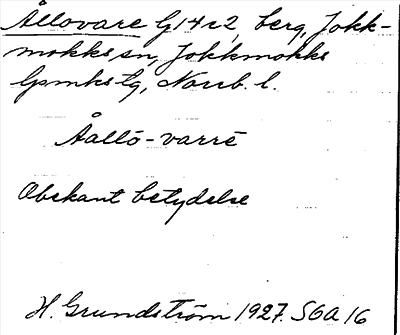 Ållovare G14 c2, berg, Jokk-
mokks sn, Jokkmokks
lpmks tg, Norrb. l.
Åallō-varrē
Obekant betydelse
H. Grundström 1927. S6A16